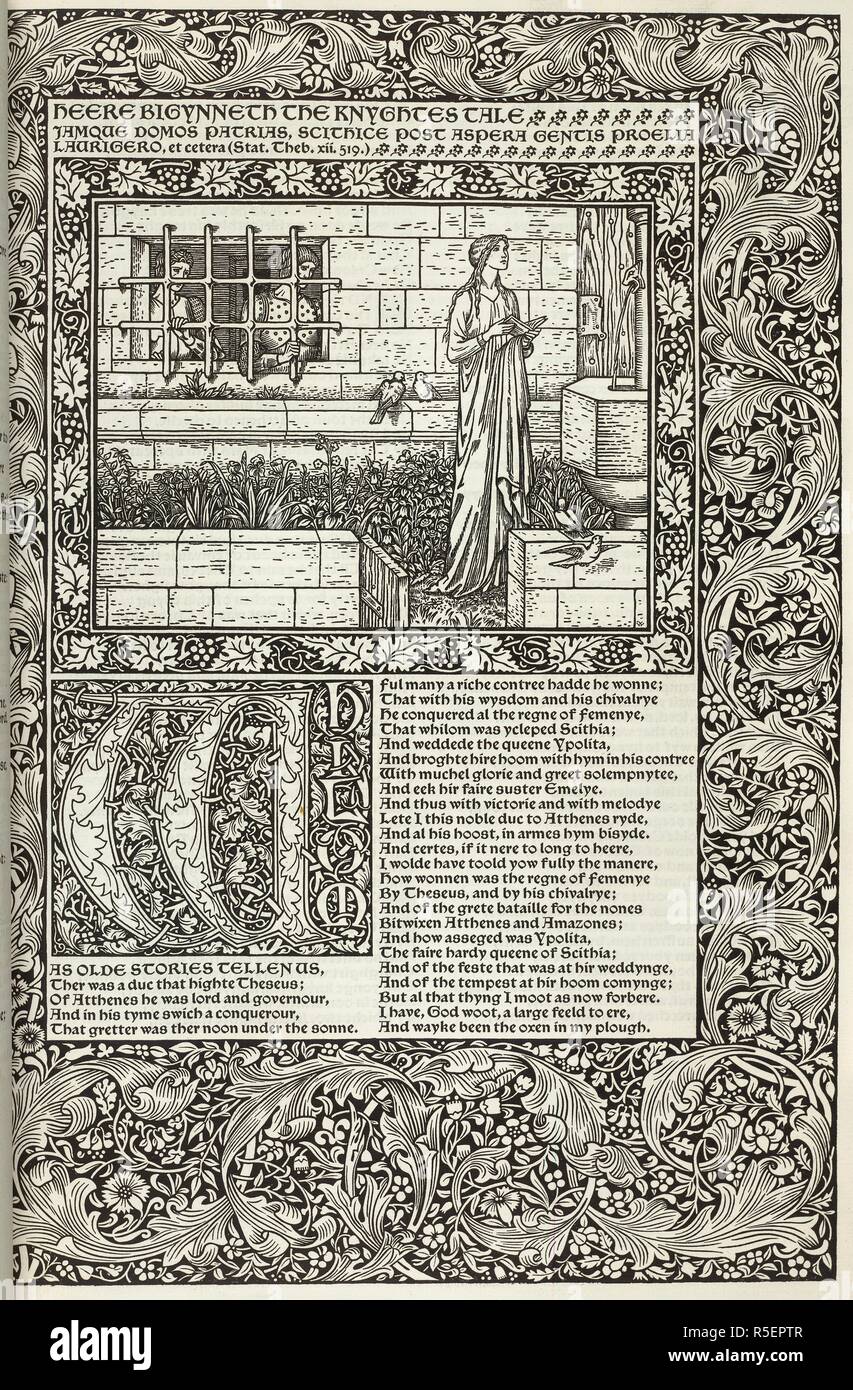 HEERE BIGYNNETH THE KNYGHTES TALE
IAMQUE DOMOS PATRIAS, SCITHICE POST ASPERA GENTIS PROELIA
LAURIGERO, et cetera (Stat. Theb. xii. 519.)
WHILOM
AS OLDE STORIES TELLEN US,
Ther was a duc that highte Theseus;
Of Atthenes he was lord and governour,
And in his tyme swich a conquerour,
That gretter was ther noon under the sonne.
Ful many a riche contree hadde he wonne;
That with his wysdom and his chivalrye
He conquered al the regne of Femenye,
That whilom was ycleped Scithia;
And weddede the queene Ypolita,
And broghte hire hoom with hym in his contree
With muchel glorie and greet solempnytee,
And eek hir faire suster Emelye.
And thus with victorie and with melodye
Lete I this noble duc to Atthenes ryde,
And al his hoost, in armes hym bisyde.
And certes, if it nere to long to heere,
I wolde have toold yow fully the manere,
How wonnen was the regne of Femenye
By Theseus, and by his chivalrye;
And of the grete bataille for the nones
Bitwixen Atthenes and Amazones;
And how asseged was Ypolita,
The faire hardy queene of Scithia;
And of the feste that was at hir weddynge,
And of the tempest at hir hoom comynge;
But al that thyng I moot as now forbere.
I have, God woot, a large feeld to ere,
And wayke been the oxen in my plough.
alamy
Image ID: R5EPTR
www.alamy.com